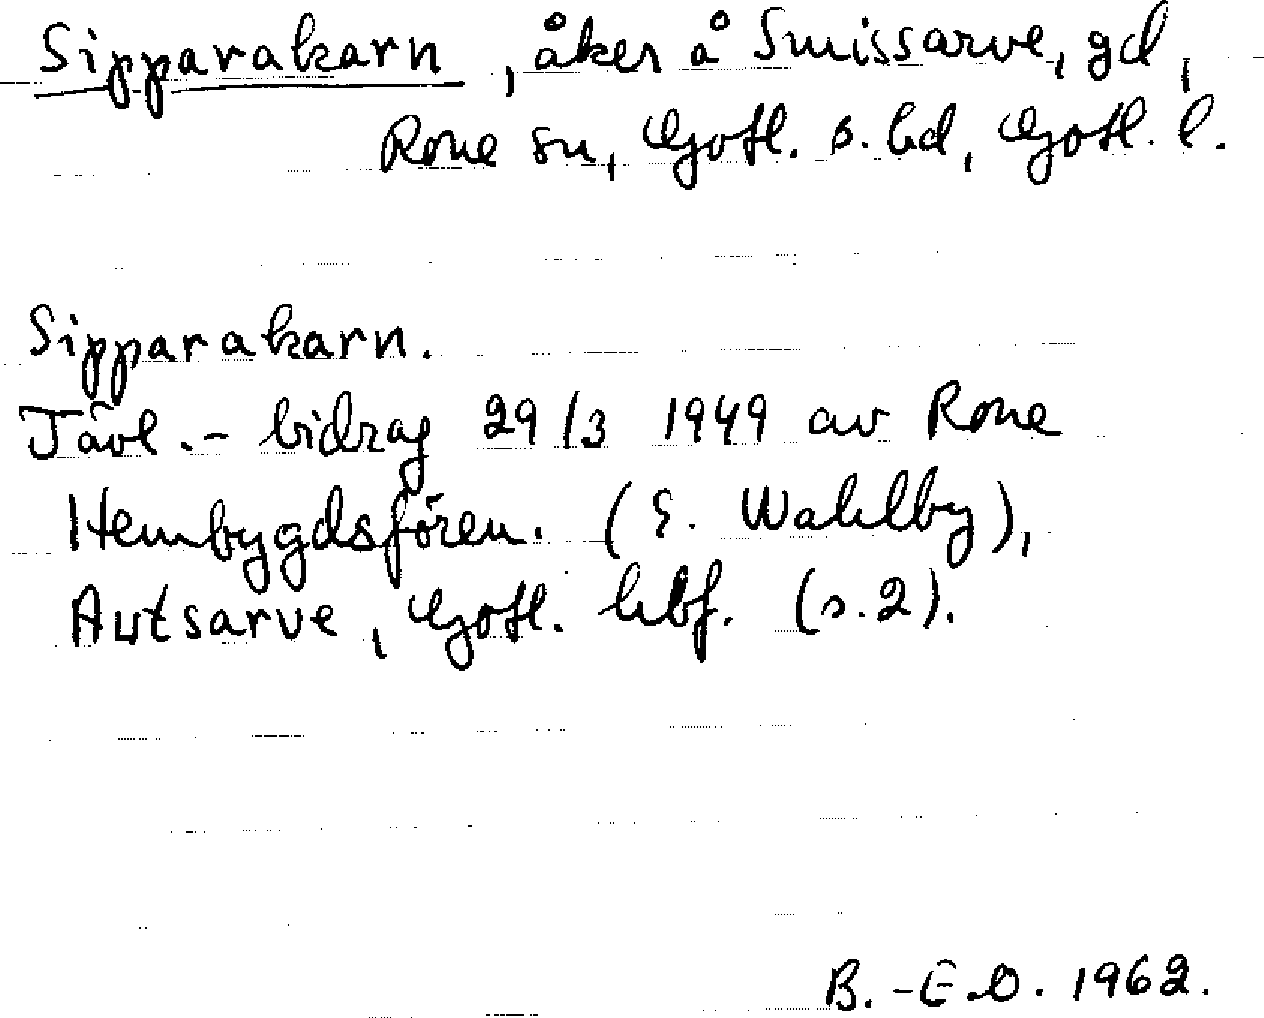 Sipparakarn, åker å Smissarve, gd,
Rone sn, Gotl. s. hd, Gotl. l.
Sipparakarn.
Tävl.- bidrag 29/3 1949 av Rone
Hembygdsfören. (E. Wahlby),
Autsarve, Gotl. hbf. (s.2).
B.-E.O. 1962.